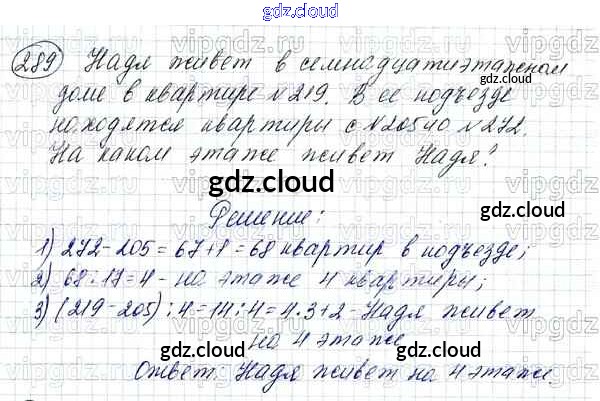 gdz.cloud
289 Надя живет в семнадцатиэтажном
доме в квартире №219. В ее подъезде
находятся квартиры с №205 по №272.
На каком этаже живет Надя?
gdz.cloud
Решение:
1) 272-205=67+1=68 квартир в подъезде;
2) 68:17=4 - на этаже 4 квартиры;
3) (219-205):4=14:4=4·3+2-Надя живет
на 4 этаже
gdz.cloud
Ответ: Надя живет на 4 этаже.
gdz.cloud
gdz.cloud
gdz.cloud
gdz.cloud
gdz.cloud